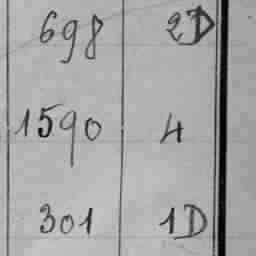 698 2D
1590 4
301 1D